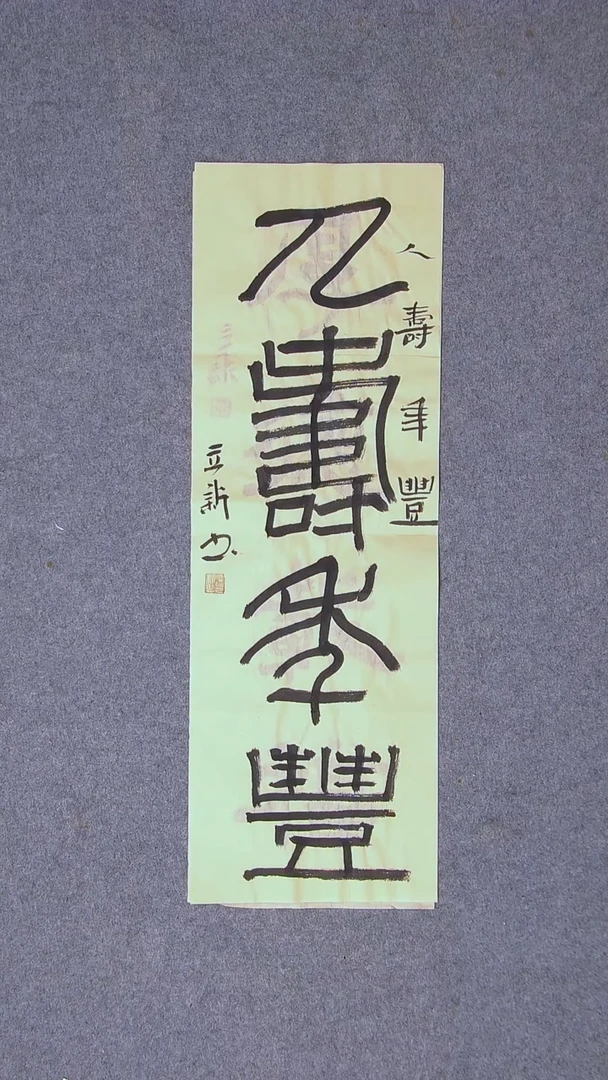 人壽年豐
人壽年豐
立新书